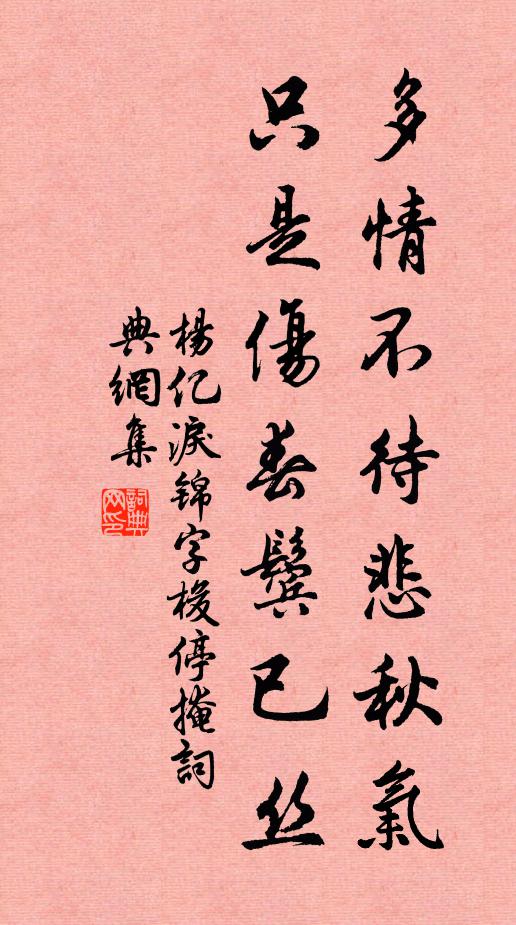 多情不待悲秋氣
只是傷春鬢已丝
楊亿淚錦字梭停掩詞
典網集
詞典网印